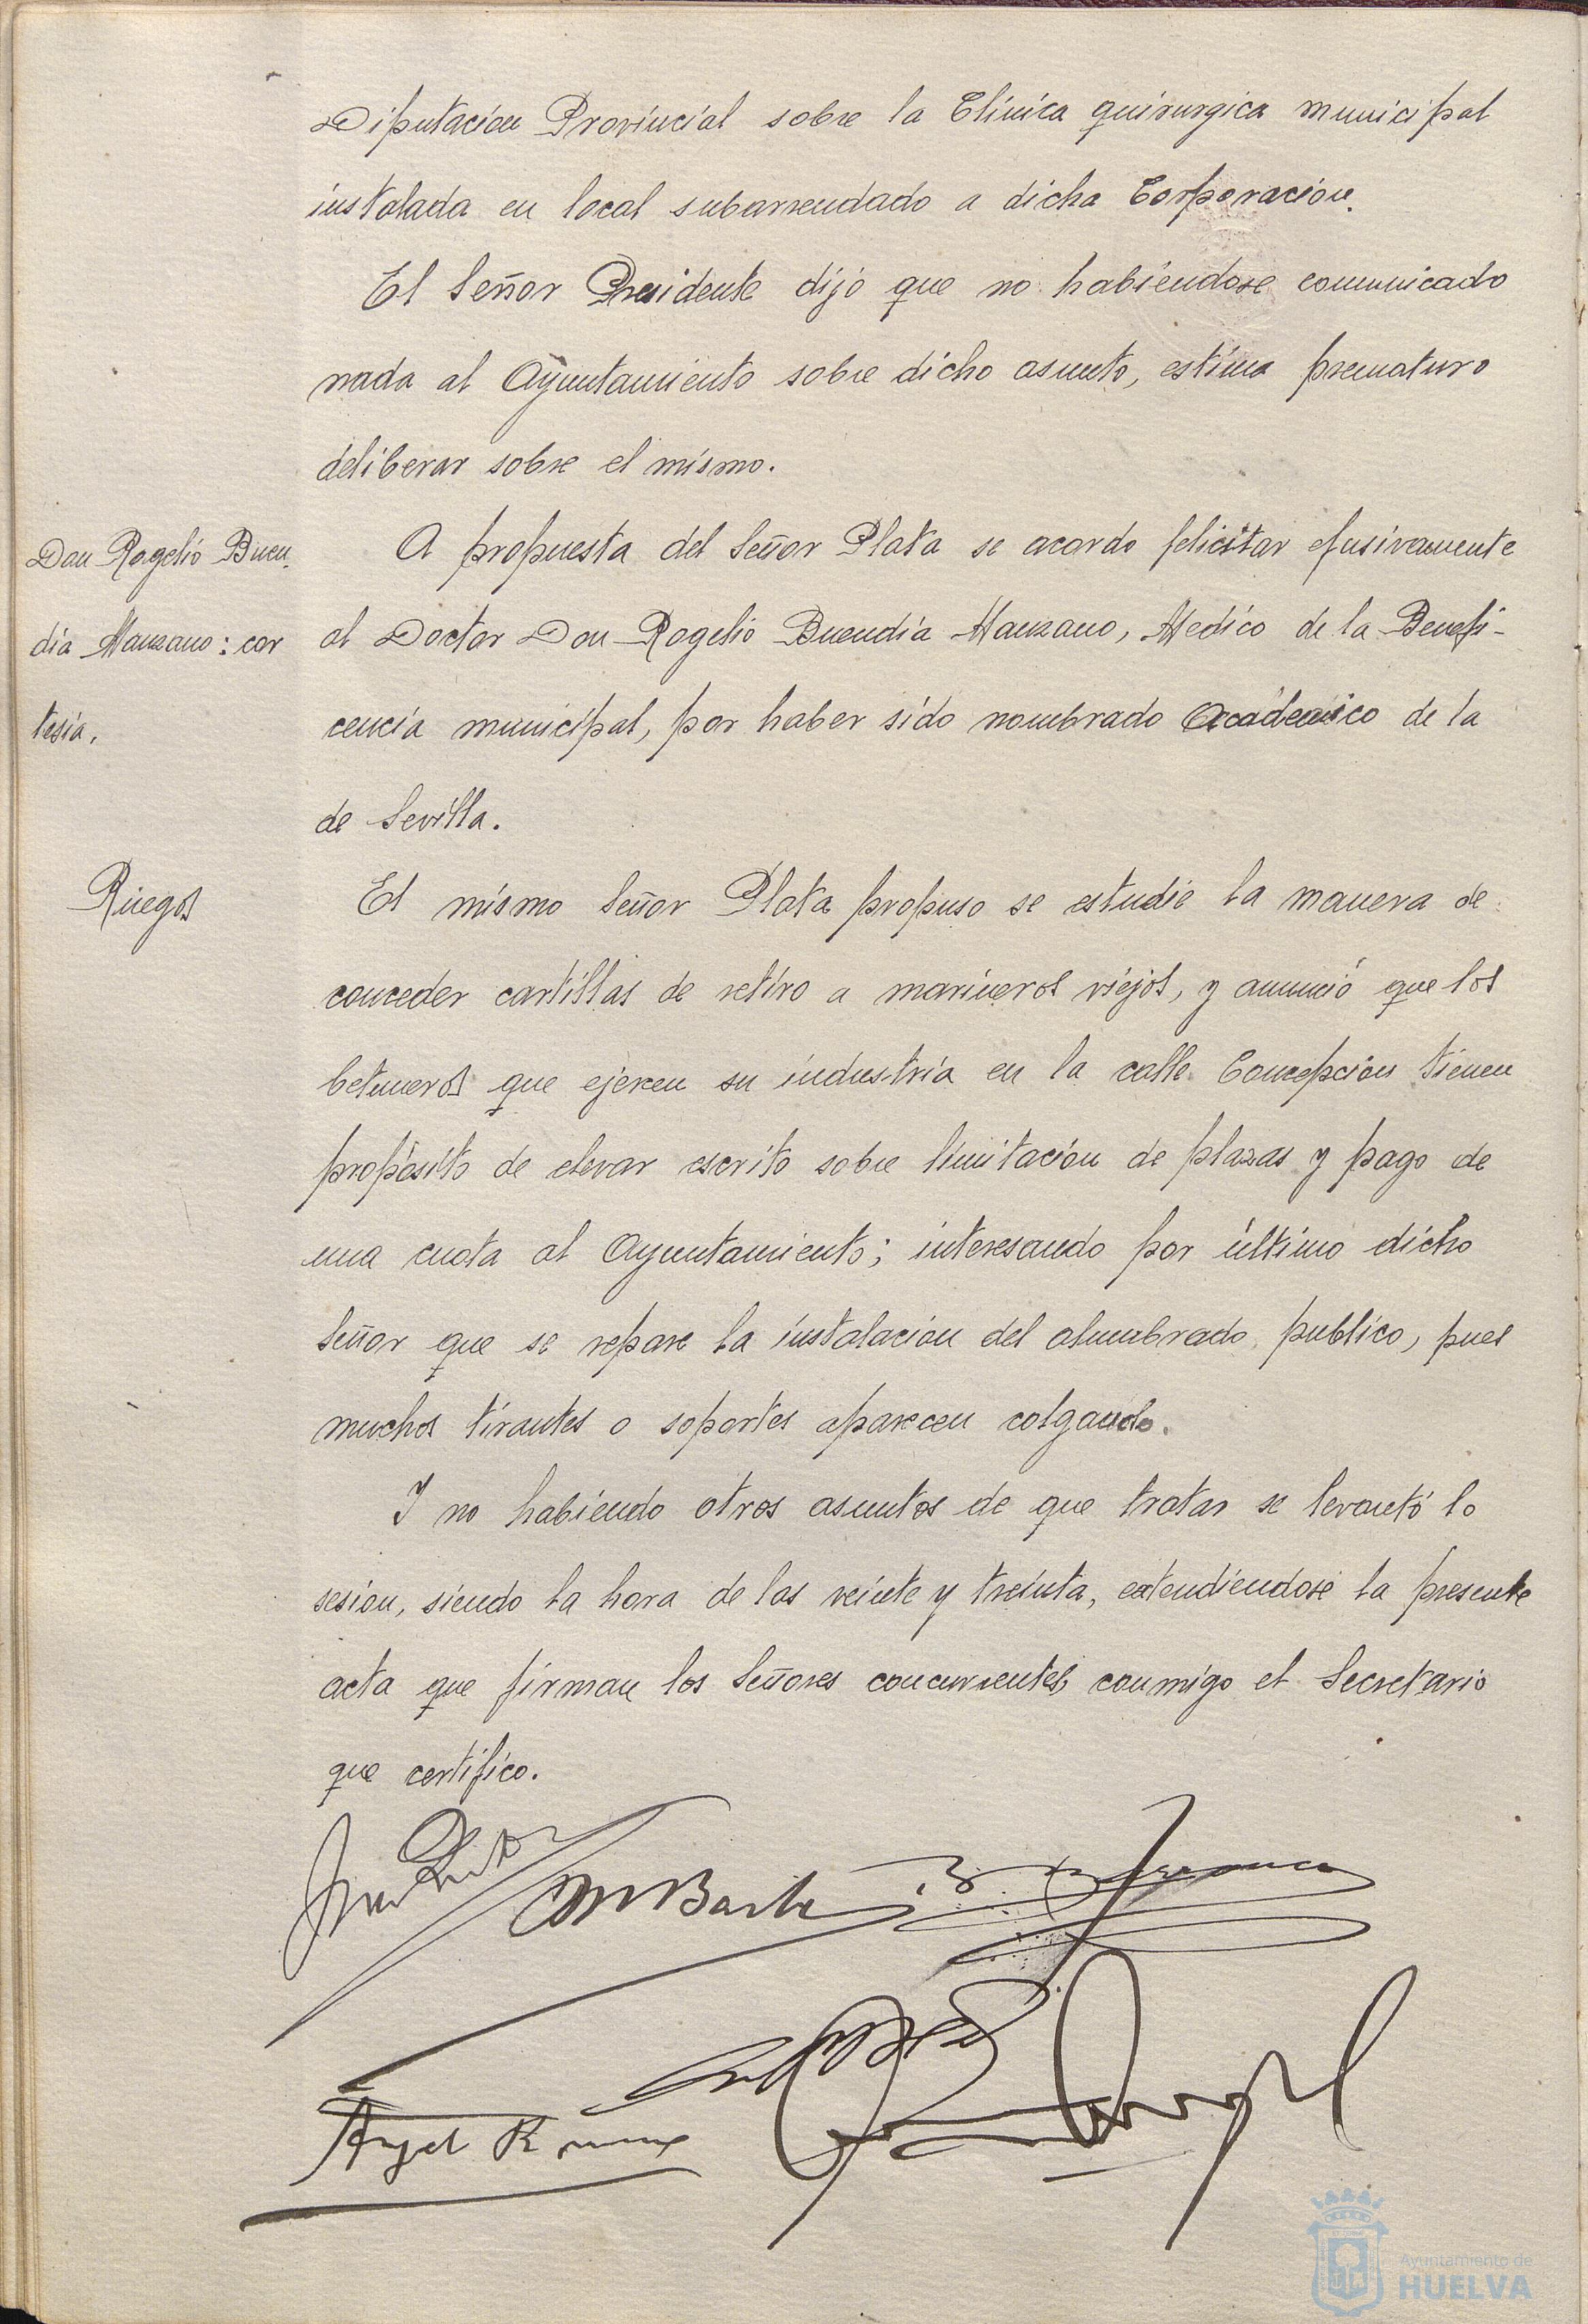 Diputacion Provincial sobre la Clínica quirurgica municipal
instalada en local subarrendado a dicha Corporacion.
El Señor Presidente dijo que no habiendose comunicado
nada al Ayuntamiento sobre dicho asunto, estima prematuro
deliberar sobre el mismo.
Don Rogelio Buen-
día Manzano: cor
tesia.
A propuesta del Señor Plata se acordo felicitar efusivamente
al Doctor Don Rogelio Buendía Manzano, Medico de la Benefi-
cencia municipal, por haber sido nombrado Academico de la
de Sevilla.
Ruegos
El mismo Señor Plata propuso se estudie la manera de
conceder cartillas de retiro a marineros viejos, y anunció que los
betuneros que ejercen su industria en la calle Concepcion tienen
propósito de elevar escrito sobre limitación de plazas y pago de
una cuota al Ayuntamiento; interesando por último dicho
Señor que se repare la instalacion del alumbrado publico, pues
muchos tirantes o soportes aparecen colgando.
Y no habiendo otros asuntos de que tratar se levantó la
sesion, siendo la hora de las veinte y treinta, extendiendose la presente
acta que firman los Señores concurrentes conmigo el Secretario
que certifico.
Ayuntamiento de
HUELVA